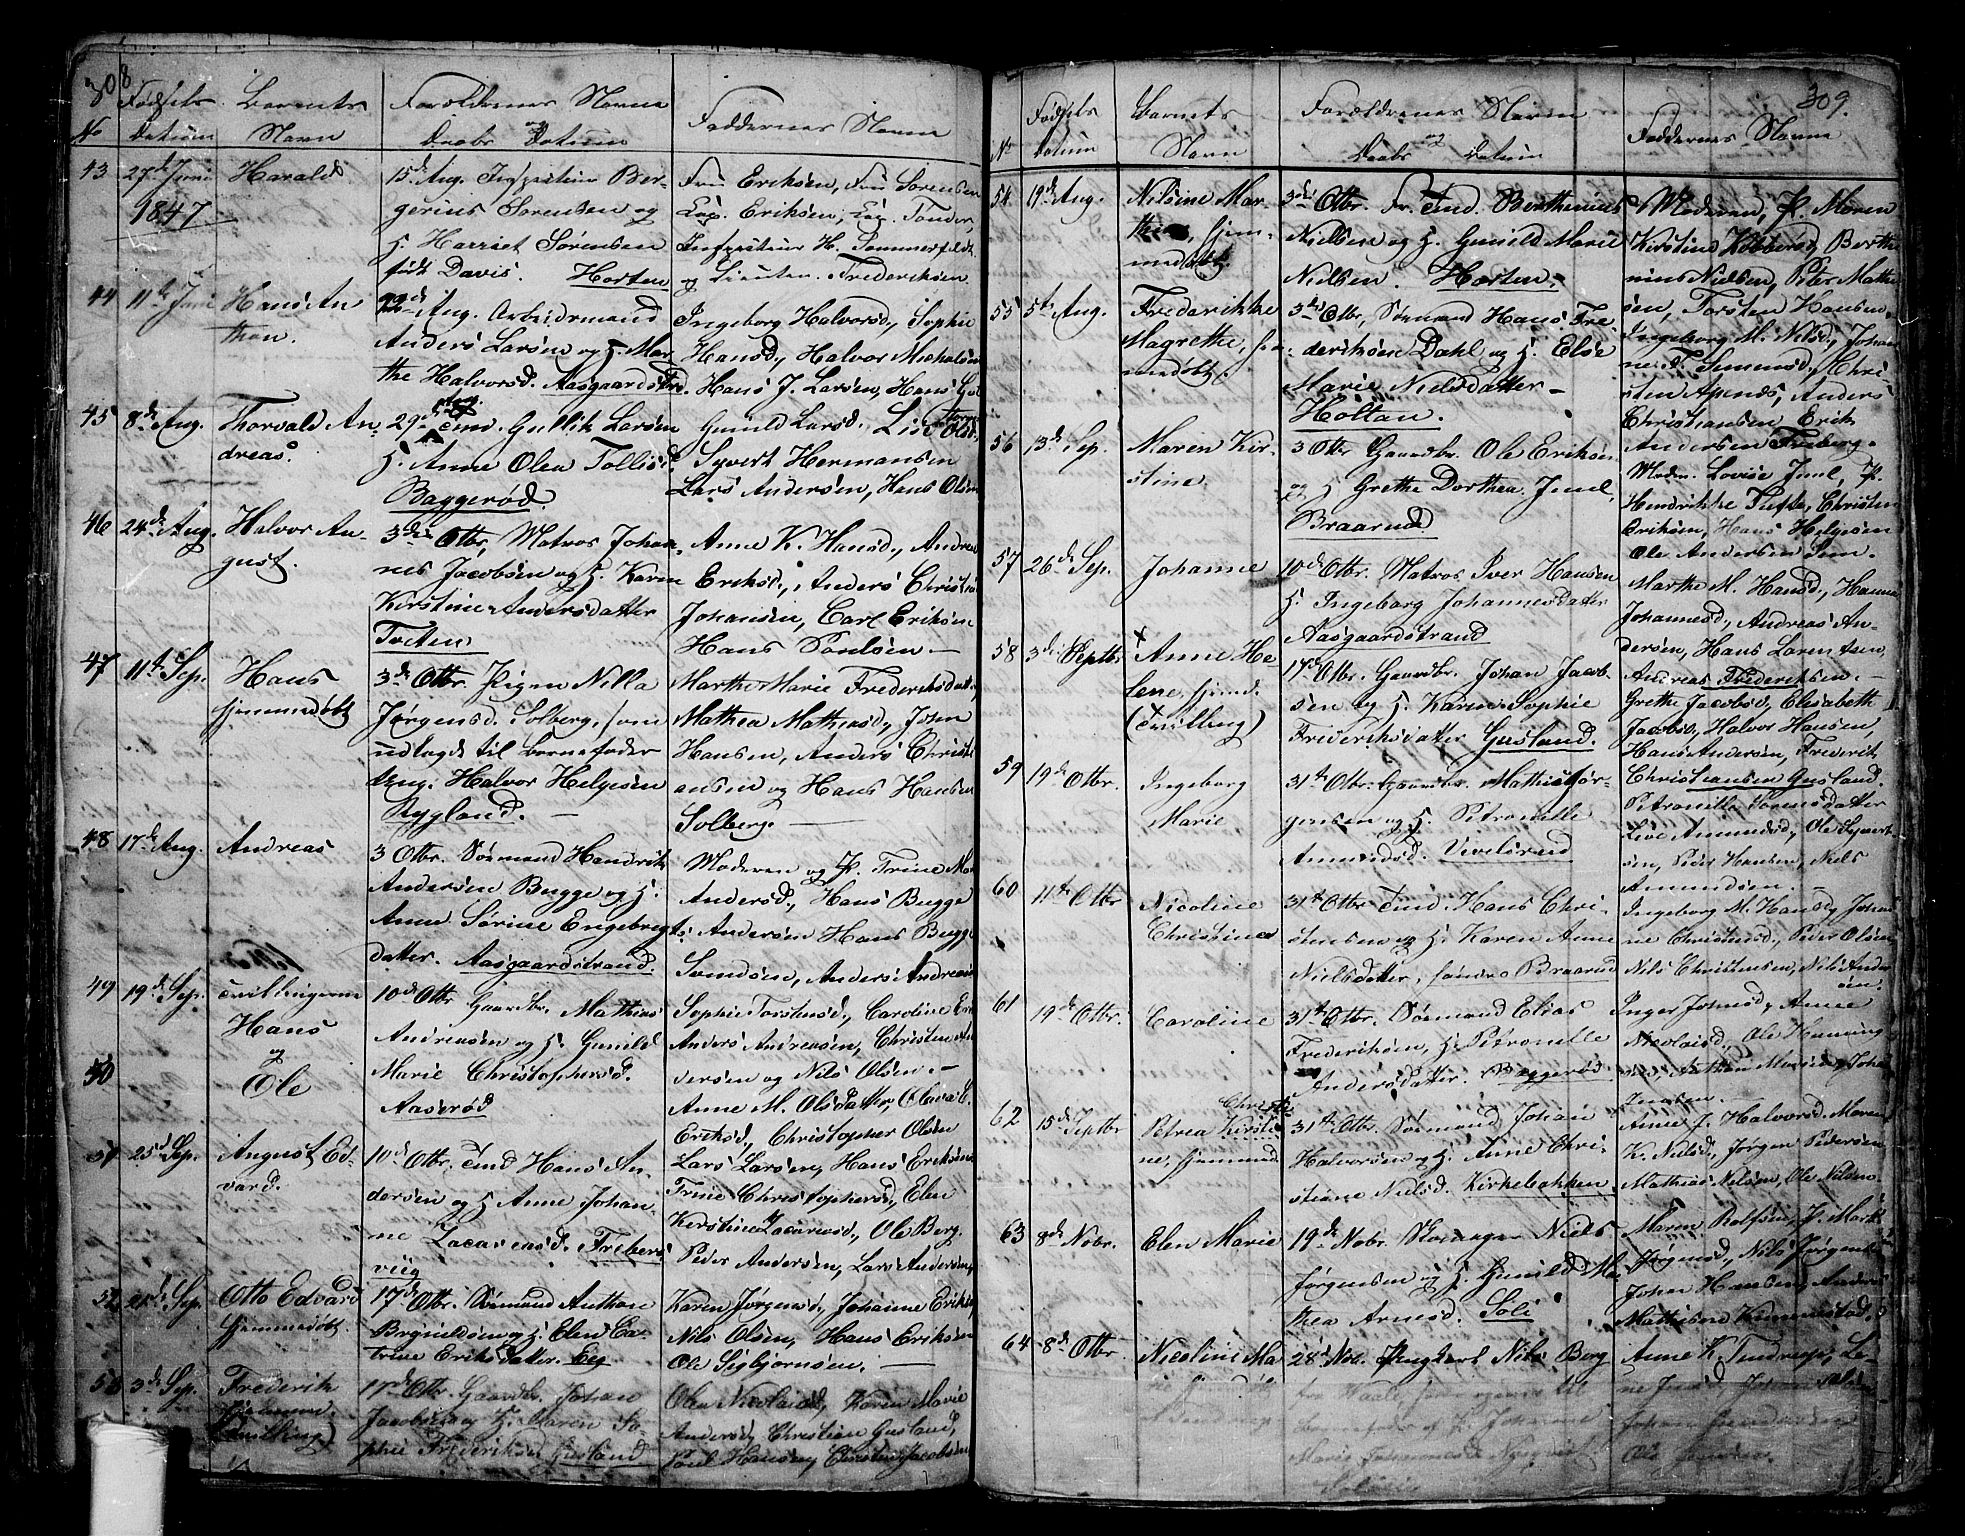 308
No Fødsels Datum
Barnets Navn
Forældrenes Navne og Daabs Datum
Faddernes Navne
43 27de Juni 1847
Harald
15de Aug. Inspekteur Ber-
gerius Sørensen og
H. Harriet Sørensen
født Davis. Horten
Fru Eriksen, Fru Sørensen
Cap. Eriksen,
Inspekteur H. Sommerfeldt
og Lieuten. Frederiksen
44 11te Juni
Hans An
thon.
22de Aug. Arbeidsmand
Anders Larsen og H. Mar
the Halvorsd. Aasgaardstrd
Ingeborg Halvorsd., Sophie
Hansd., Halvor Michelsen
Hans J. Larsen, Hans
45 8de Aug.
Thorvald An-
dreas.
29de Aug. Gullik Larsen
H. Anne Olea Tollisd.
Baggerød.
Gunild Larsd.
Syvert Hermansen
Lars Andersen, Hans Olsen
46 24de Aug.
Halvor Au-
gust.
3de Otbr. Matros Johan-
nes Jacobsen og H. Karen
Kirstine Andersdatter
Tveten
Anne K. Hansd., Andrea
Eriksd., Anders Christia
Johansen, Carl Eriksen
Hans Poulsen —
47 11te Sep.
Hans
hjemmedøbt
3de Otbr. Pigen Nilla
Jørgensd. Solberg, som
udlagde til barnefader
Ung. Halvor Helgesen
Rygland. —
Marthe Marie Frederiksdatt.
Mathea Mathiasd., John
Hansen, Anders Christi
ansen og Hans Hansen
Solberg. —
48 17de Aug.
Andreas
3 Otbr. Sømand Hendrik
Andersen Bugge og H.
Anne Sørine Engebregts
datter. Aasgaardstrand.
Moderen og P. Trine M.
Andersd., Hans Bugge
Andersen Hans Bugge
Svendsen, Anders Andreas
49 19de Sep.
Tvillingerne
Hans
og
50
Ole
10de Otbr. Gaardbr. Mathias
Andreasen og H. Gunild
Marie Christophersd.
Aaserød
Sophie Torstensd., Caroline
Anders Andreasen, Christen An
dersen og Nils Olsen. —
Anne M. Olsdatter, Olava E.
Eriksd., Christopher Olsen
Lars Larsen, Hans Eriksen
51 25de Sep.
August Ed-
vard.
10de Otbr. Tmd Hans An-
dersen og H Anne Johan-
ne Zacariasd. Frebers
viig
Trine Christophersd., Elen
Kirstine Zacariasd., Ole Berg.
Peder Andersen, Lars Andersen,
52 21de Sep.
Otto Edvard
hjemmedøbt.
17de Otbr. Sømand Anthon
Brynildsen og H. Elen Ca-
trine Eriksdatter. Eeg
Karen Jørgensd., Johanne Eriks
Nils Olsen, Hans Eriksen
Ole Sigbjørnsen. —
53 3de Sep.
Frederik
(Tvilling)
17de Otbr. Gaardbr. Johan
Jacobsen og H. Karen So-
phie Frederiksd. Gusland
Olea Nicolaisd., Karen Marie
Andersd., Christian Gusland,
Poul Hansen, Christen Jacobsen
309.
No Fødsels Datum
Barnets Navn
Forældrenes Navne og Daabs Datum
Faddernes Navne
54 19de Aug.
Nilsine Mar-
thea, hjem-
medøbt
3de Otbr. Fr. Tmd. Berthenius
Nielsen og H. Gunild Marie
Nielsen. Horten —
Moderen, P. Maren
Kirstine Berthe
nius Nielsen, Peter Mathi
sen, Torsten Hansen
55 5te Aug.
Frederikke
Magrethe, hje-
mmedøbt.
3de Otbr. Sømand Hans Fre-
deriksen Dahl og H. Else
Marie Nielsdatter —
Holtan.
Ingeborg M. Nilsd., Johan
ne Simensd., Chri-
sten Apenæs, Anders
Christiansen Erik
Andersen Freberg.
56 13de Sep.
Maren Kir-
stine
3 Otbr Gaardbr. Ole Eriksen
og H Grethe Dorthea Juul,
Braarud
Moderen Lovise Juul, P.
Hendrikke Tufte, Christen
Eriksen, Hans Helgesen
Ole Andersen
57 26de Sep.
Johanne
10de Otbr. Matros Iver Hansen
H. Ingeborg Johannesdatter
Aasgaardstrand
Marthe M. Hansd., Hanna
Johannesd., Andreas An-
dersen, Hans Larentsen
Andreas Frederiksen. —
58 3de Septbr
Anne He
lene, hjemd.
(Tvilling)
17de Otbr. Gaardbr. Johan Jacob-
sen og H. Karen Sophie
Frederiksdatter Gusland.
Grethe Jacobsd., Elisabeth
Jacobsd., Halvor Hansen,
Hans Andersen, Frederik
Christiansen Gusland.
59 19de Otbr.
Ingeborg
Marie
31te Otbr. Gaardbr. Mathis Jør-
gensen og H. Petronelle
Amundsd. Vivelsrud
Petronille Sørensdatter
Live Amundsd., Ole Syvert
sen, Peder Hansen, Niels
Amundsen. —
60 11te Otbr
Nicoline
Christine
31te Otbr Tmd Hans Chri-
stensen og H. Karen Anne
Nielsdatter, søndre Braarud
Ingeborg M. Hansd., Johan
ne Christensd., Peder Olsen
Nils Christensen, Nils Ander
sen.
61 19de Otbr.
Caroline
31te Otbr. Sømand Elias
Frederiksen, H. Petronelle
Andersdatter. Baggerød.
Inger Johnsd., Anne
Nicolaisd., Ole Henning
62 15de Septbr
Petrea Kirsti
ne, hjemmd.
31te Otbr. Sømand Johan
Halvorsen og H. Anne Chri-
stiane Nielsd. Kirkebakken
Anne J. Halvorsd. Maren
K. Nielsd., Jørgen Pedersen
Mathias Nilsen, Ole Nilsen.
63 8de Nobr.
Elen Marie
19de Nobr. Niels
Jørgensen og H. Gunild Ma
thea Arnesd. Soli
Maren Rolfsen, P. Mart
Jørgensd., Nils Jørgens
Johan Hansen, Anders
Mathisen
64 8de Otbr.
Nicoline Ma
28de Nov. Ungkarl Nils Berg
Anne K.
Ole